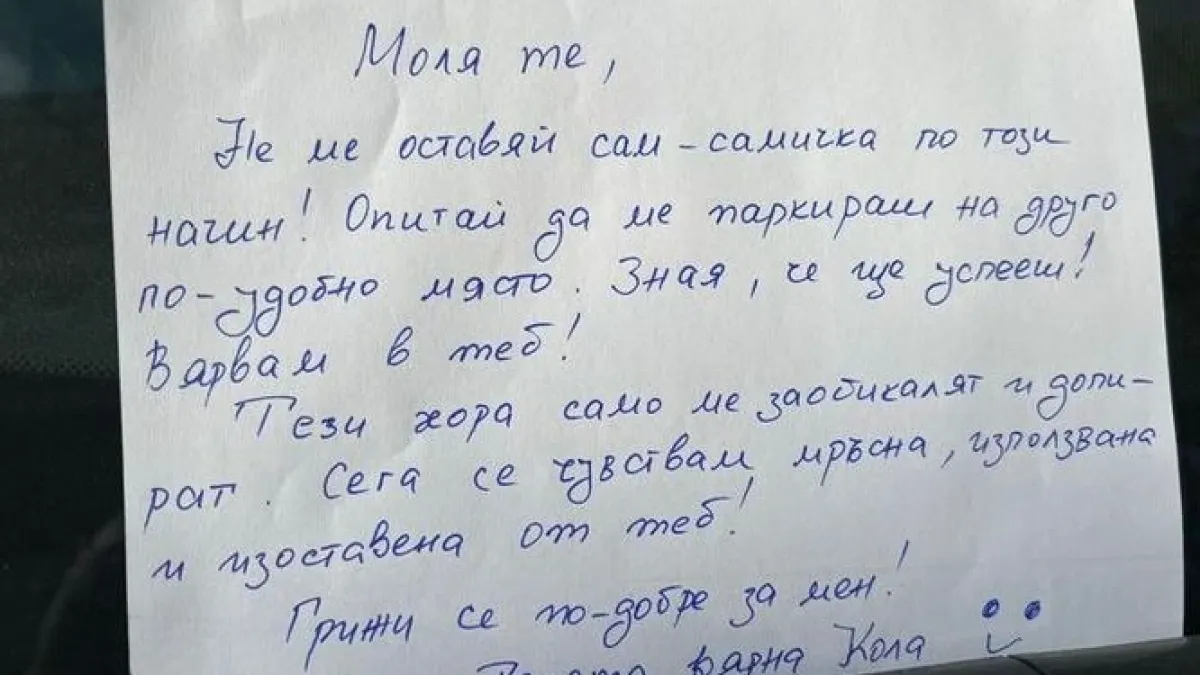 Моля те,
Не ме оставяй сам-самичка по този
начин! Опитай да ме паркираш на друго
по-удобно място. Зная, че ще успееш!
Вярвам в теб!
Тези хора само ме заобикалят и допи-
рат. Сега се чувствам мръсна, използвана
и изоставена от теб!
Грижи се по-добре за мен!
вярна Кола